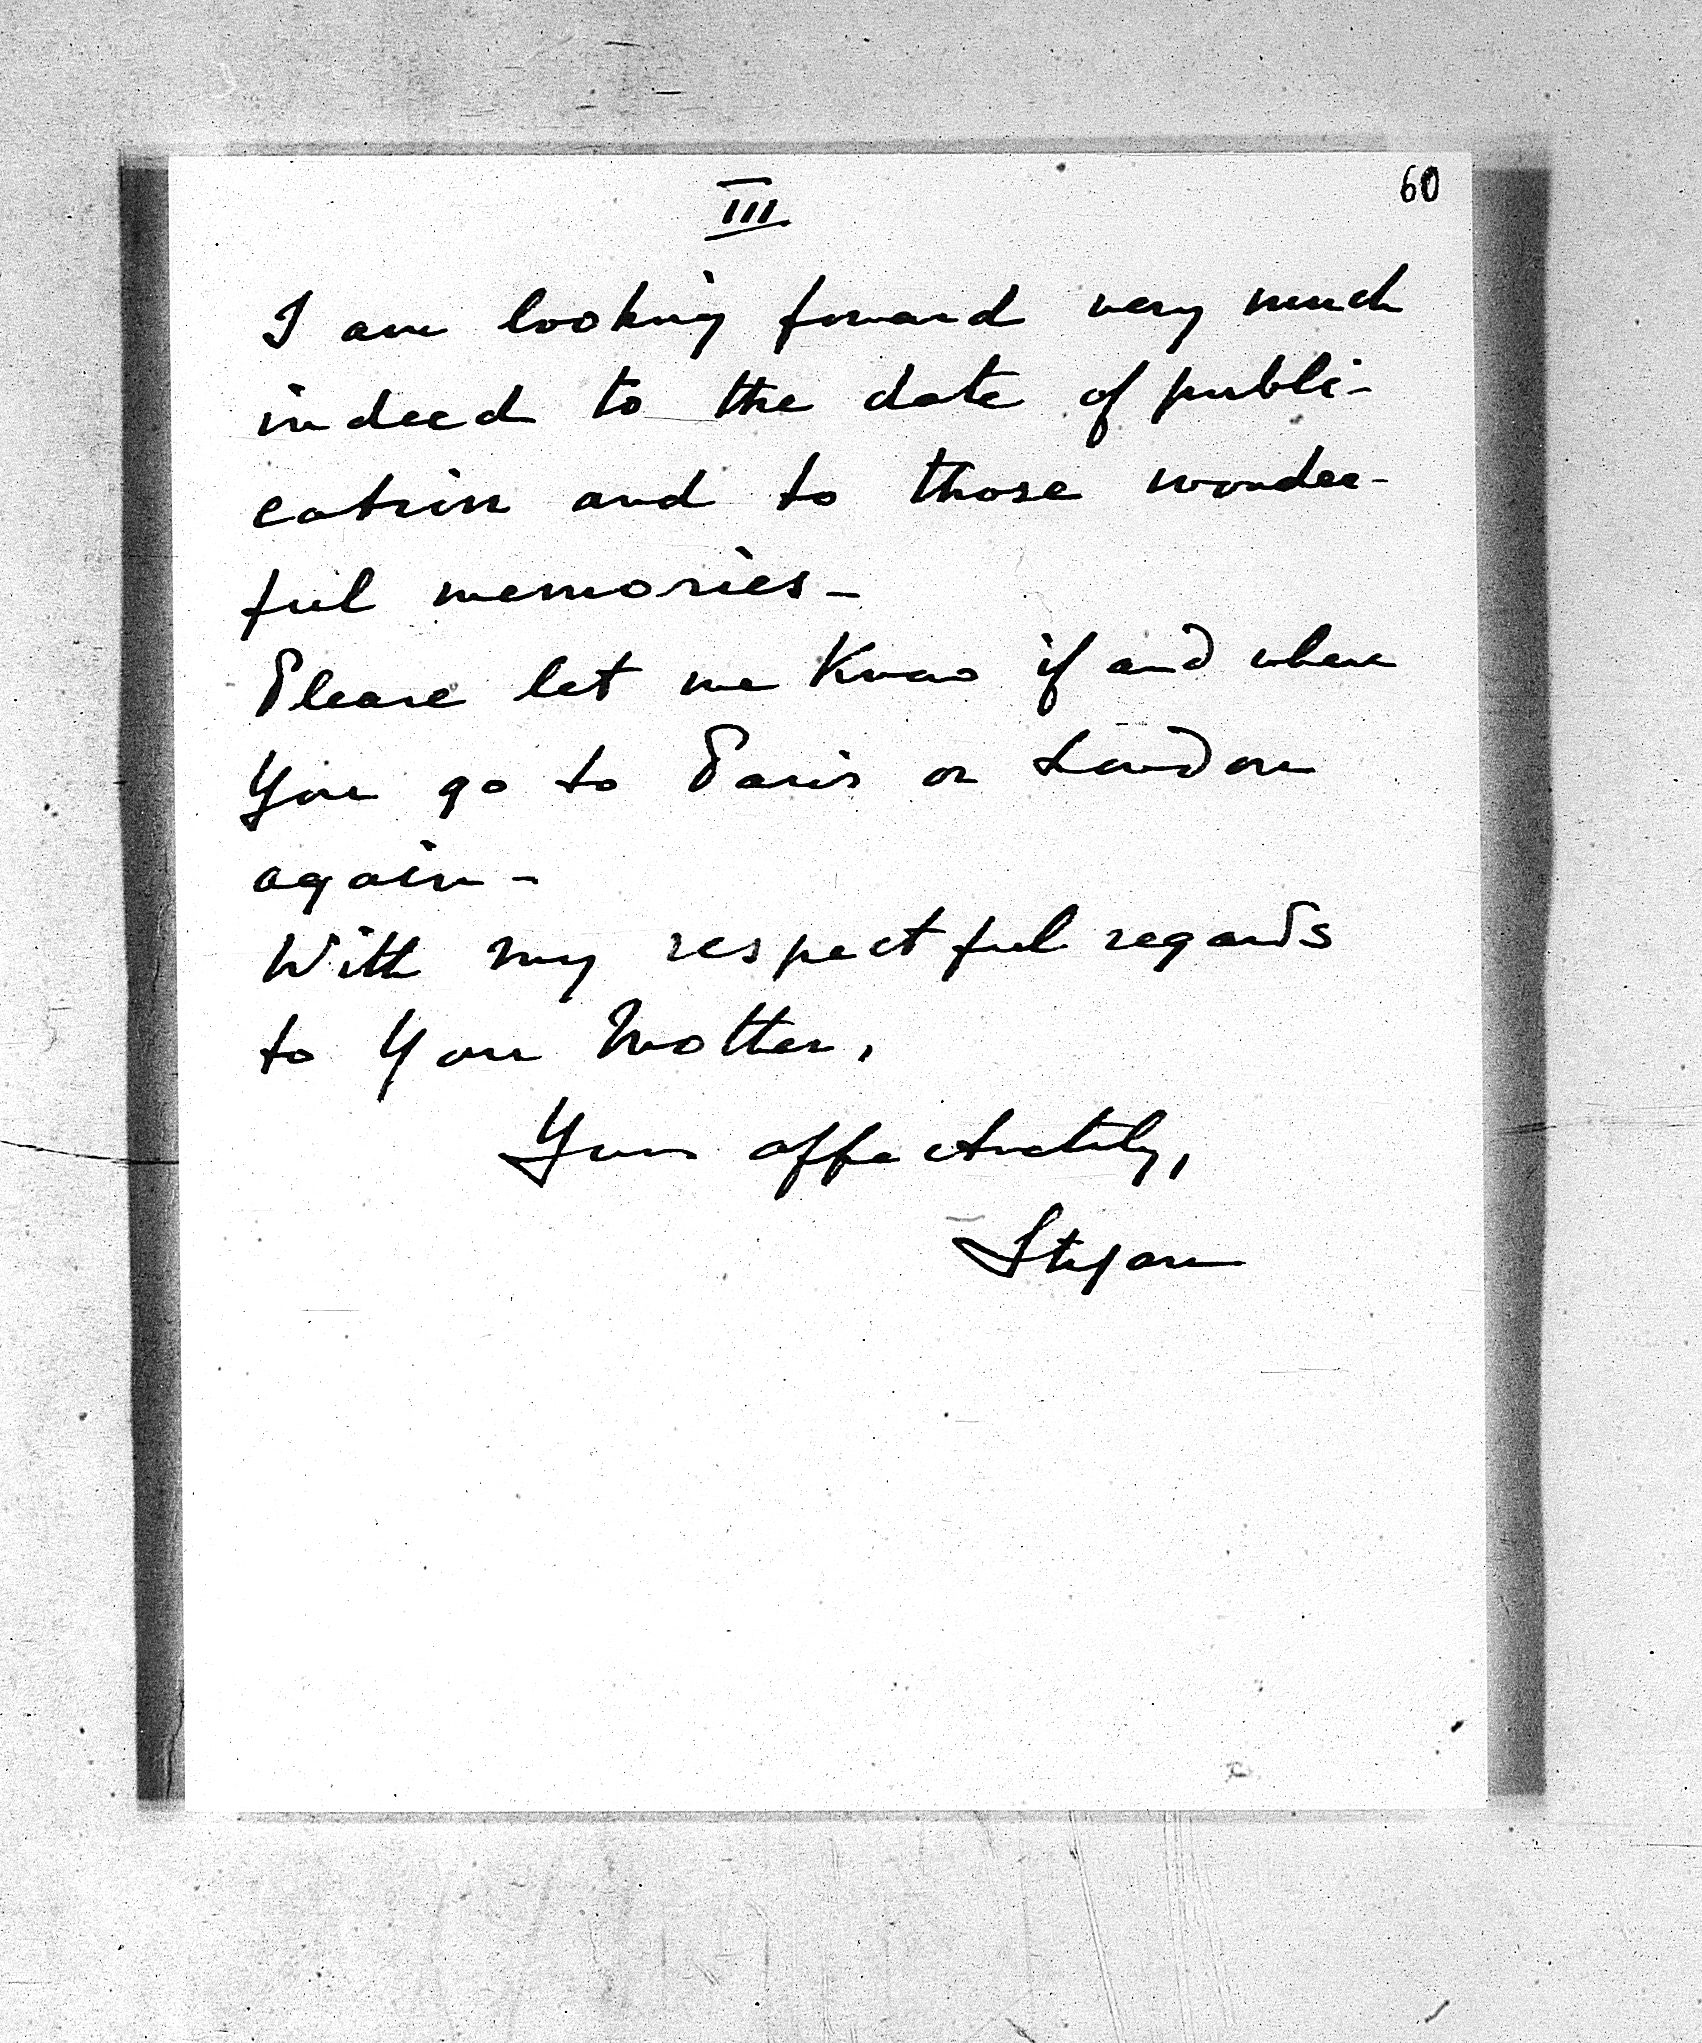 III
60
I am looking forward very much
indeed to the date of publi-
cation and to those wonder-
ful memories -
Please let me Know if and when
You go to Paris or London
again -
With my respectful regards
to Your Mother,
Yours affectionately,
Stefan